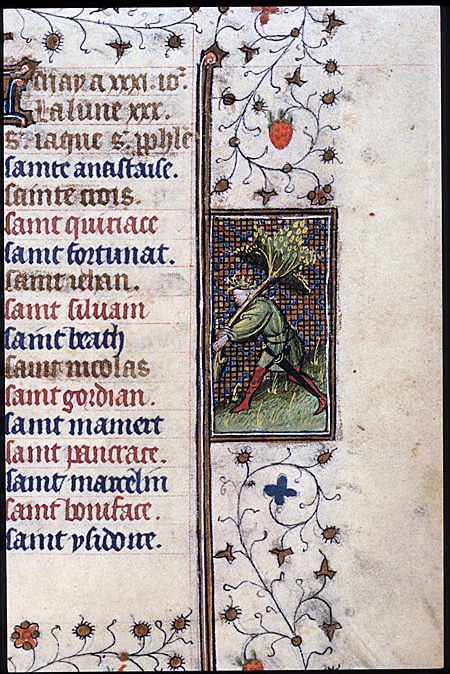 May a xxxi. io.
La lune xxx.
St iaque St. pphle
sainte anastaise.
sainte crois.
saint quiriace
saint fortunat.
saint iehan.
saint siluain
saint beath
saint nicolas
saint gordian.
saint mamert
saint pancrace.
saint marcelin
saint boniface.
saint ysidoire.